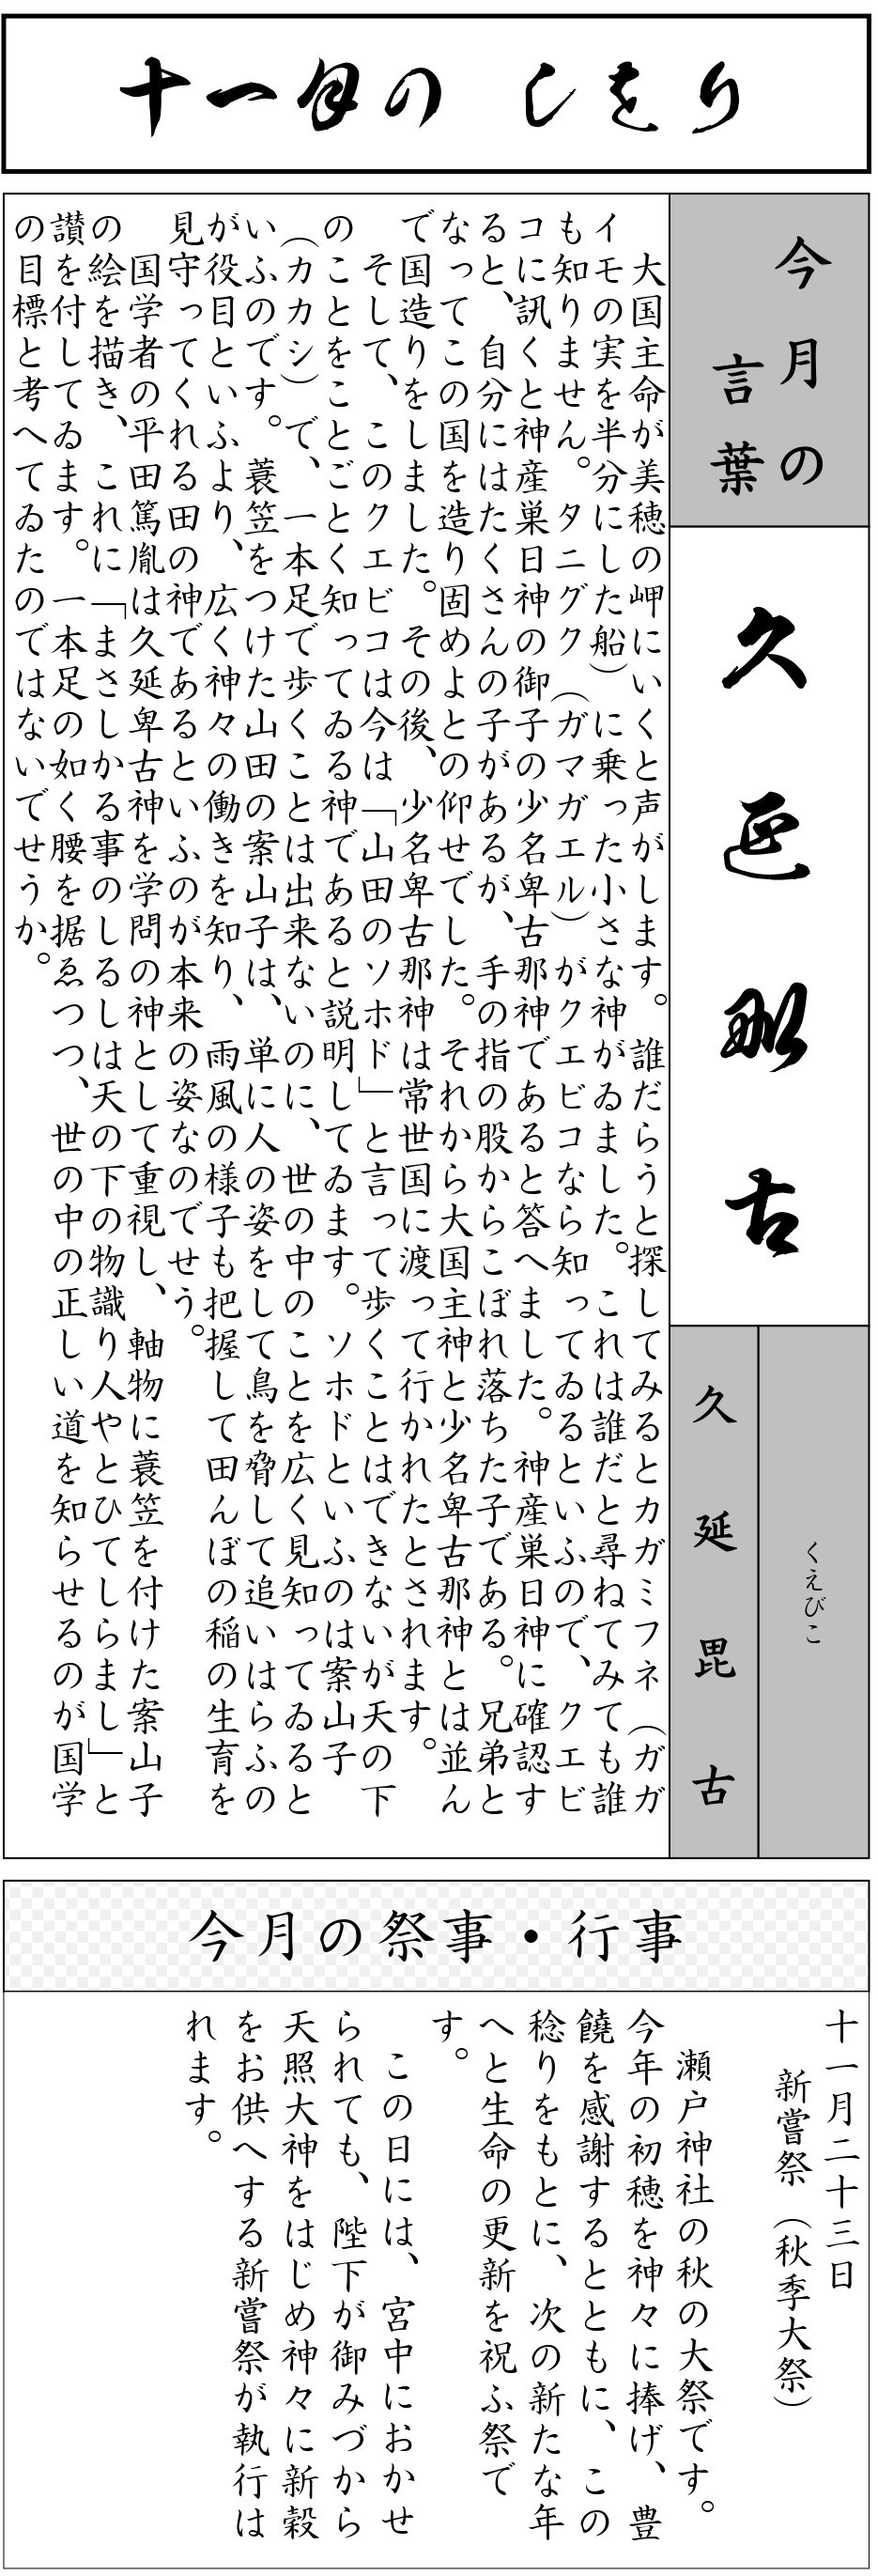 十一月の しをり
今月の
言葉
久延那古
くえびこ
久延毘古
大国主命が美穂の岬にいくと声がします。誰だらうと探してみるとカガミフネ（ガガ
イモの実を半分にした船）に乗った小さな神がゐました。これは誰だと尋ねてみても誰
も知りません。タニグク（ガマガエル）がクエビコなら知ってゐるといふので、クエビ
コに訊くと神産巣日神の御子の少名卑古那神であると答へました。神産巣日神に確認す
ると、自分にはたくさんの子があるが、手の指の股からこぼれ落ちた子である。兄弟と
なってこの国を造り固めよとの仰せでした。それから大国主神と少名卑古那神とは並ん
で国造りをしました。その後、少名卑古那神は常世国に渡って行かれたとされます。
そして、このクエビコは今は「山田のソホド」と言って歩くことはできないが天の下
のことをことごとく知ってゐる神であると説明してゐます。ソホドといふのは案山子
（カカシ）で、一本足で歩くことは出来ないのに、世の中のことを広く見知ってゐると
いふのです。蓑笠をつけた山田の案山子は、単に人の姿をして鳥を脅して追いはらふの
が役目といふより、広く神々の働きを知り、雨風の様子も把握して田んぼの稲の生育を
見守ってくれる田の神であるといふのが本来の姿なのでせう。
国学者の平田篤胤は久延卑古神を学問の神として重視し、軸物に蓑笠を付けた案山子
の絵を描き、これに「まさしかる事のしるしは天の下の物識り人やとひてしらまし」と
讃を付してゐます。一本足の如く腰を据ゑつつ、世の中の正しい道を知らせるのが国学
の目標と考へてゐたのではないでせうか。
今月の祭事・行事
十一月二十三日
新嘗祭（秋季大祭）
瀬戸神社の秋の大祭です。
今年の初穂を神々に捧げ、豊
饒を感謝するとともに、この
稔りをもとに、次の新たな年
へと生命の更新を祝ふ祭で
す。
この日には、宮中におかせ
られても、陛下が御みづから
天照大神をはじめ神々に新穀
をお供へする新嘗祭が執行は
れます。